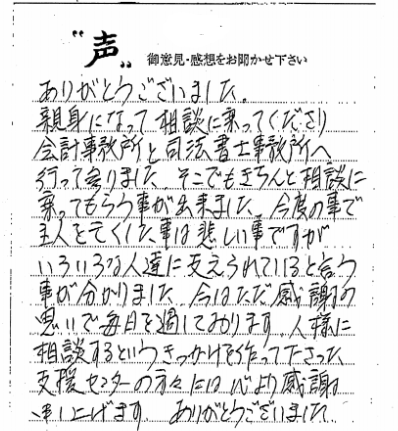 “声„ 御意見・感想をお聞かせ下さい
ありがとうございました。
親身になって相談に乗ってくださり
会計事務所と司法書士事務所へ
行って参りました。そこでもきちんと相談に
乗ってもらう事が出来ました。今度の事で
主人を亡くした事は悲しい事ですが
いろいろな人達に支えられていると言う
事が分かりました。今はただ感謝の
思いで毎日を過しております。人様に
相談するというきっかけを作って下さった
支援センターの方々には心より感謝
申し上げます。ありがとうございました。